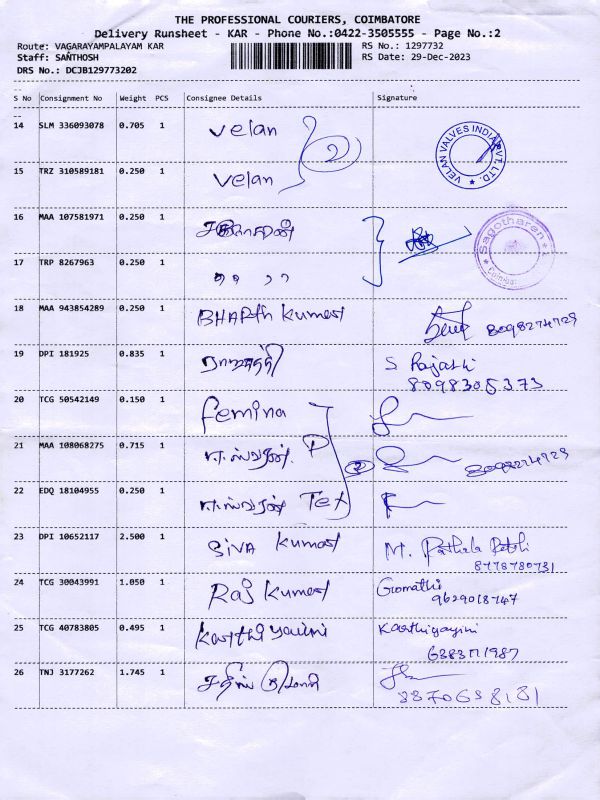 THE PROFESSIONAL COURIERS, COIMBATORE
Delivery Runsheet - KAR - Phone No.:0422-3505555 - Page No.:2
Route: VAGARAYAMPALAYAM KAR RS No.: 1297732
Staff: SANTHOSH RS Date: 29-Dec-2023
DRS No.: DCJB129773202
S No Consignment No Weight PCS Consignee Details Signature
14 SLM 336093078 0.705 1 Velan VELAN VALVES INDIA PVT. LTD.
15 TRZ 310589181 0.250 1 Velan 2
16 MAA 107581971 0.250 1 Sagotharen
17 TRP 8267963 0.250 1 " " Coimbat
18 MAA 943854289 0.250 1 BHARth kumar 8098274729
19 DPI 181925 0.835 1 ராஜாத்தி S Rajathi
8098305373
20 TCG 50542149 0.150 1 femina
21 MAA 108068275 0.715 1 P 2 8098274729
22 EDQ 18104955 0.250 1 Tex
23 DPI 10652117 2.500 1 SIVA kumar M.
8778780731
24 TCG 30043991 1.050 1 Raj kumar Gomathi
9629018747
25 TCG 40783805 0.495 1 karthiyaini Karthigayini
6383711987
26 TNJ 3177262 1.745 1
8870638181